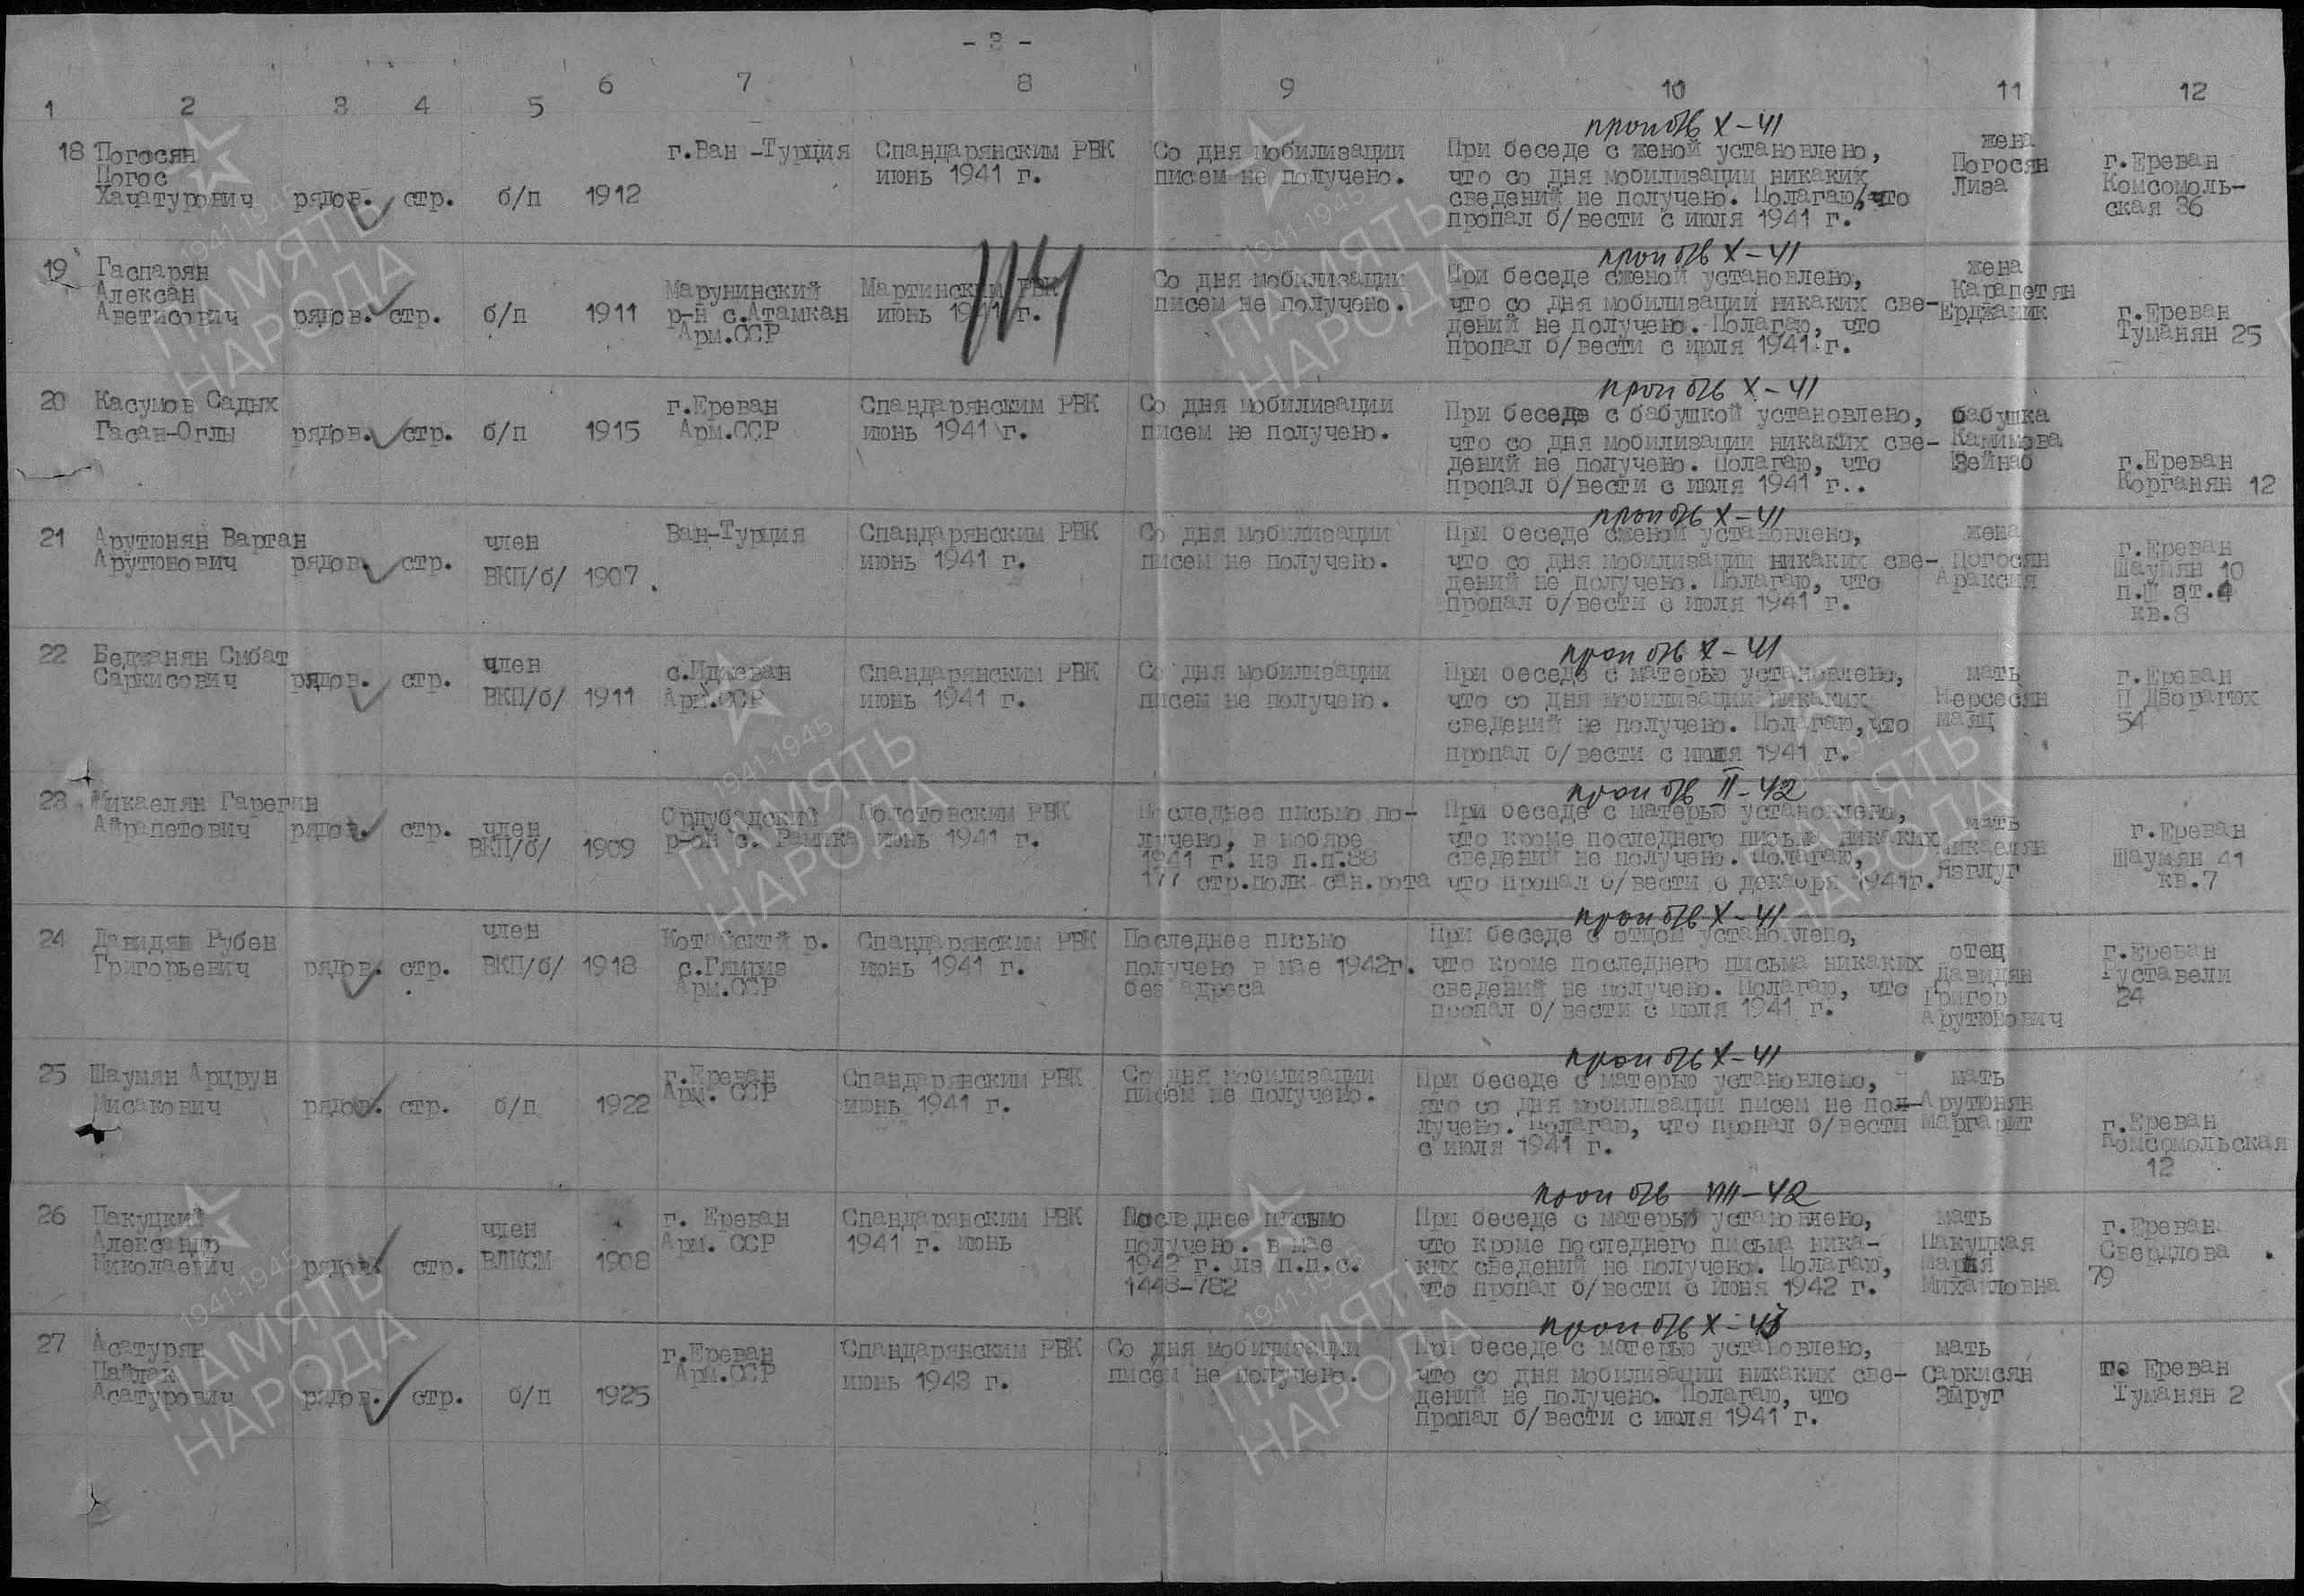 - 3 -
1 2 3 4 5 6 7 8 9 10 11 12
проп б/в X-41
18 Погосян
Погос
Хачатурович
рядов.
стр.
б/п
1912
г.Ван -Турция
Спандарянским РВК
июнь 1941 г.
Со дня мобилизации
писем не получено.
При беседе с женой установлено,
что со дня мобилизации никаких
сведений не получено. Полагаю, что
пропал б/вести с июля 1941 г.
жена
Погосян
Лиза
г.Ереван
Комсомоль-
ская 36
проп б/в X-41
19 Гаспарян
Алексан
Аветисович
рядов.
стр.
б/п
1911
Марунинский
р-н с.Атамкан
Арм.ССР
Мартинским РВК
июнь 1941 г.
Со дня мобилизации
писем не получено.
При беседе сженой установлено,
что со дня мобилизации никаких све-
дений не получено. Полагаю, что
пропал б/вести с июля 1941 г.
жена
Карапетян
Ерджаник
г.Ереван
Туманян 25
проп б/в X-41
20 Касумов Садых
Гасан-Оглы
рядов.
стр.
б/п
1915
г.Ереван
Арм.ССР
Спандарянским РВК
июнь 1941 г.
Со дня мобилизации
писем не получено.
При беседе с бабушкой установлено,
что со дня мобилизации никаких све-
дений не получено. Полагаю, что
пропал б/вести с июля 1941 г..
бабушка
Камимова
Зейнаб
г.Ереван
Корганян 12
проп б/в X-41
21 Арутюнян Вартан
Арутюнович
рядов.
стр.
член
ВКП/б/
1907
Ван-Турция
Спандарянским РВК
июнь 1941 г.
Со дня мобилизации
писем не получено.
При беседе сженой установлено,
что со дня мобилизации никаких све-
дений не получено. Полагаю, что
пропал б/вести с июля 1941 г.
жена
Погосян
Араксия
г.Ереван
Шаумян 10
п.Ш эт.4
кв.8
проп б/в X-41
22 Беджанян Смбат
Саркисович
рядов.
стр.
член
ВКП/б/
1911
с.Иджеван
Арм.ССР
Спандарянским РВК
июнь 1941 г.
Со дня мобилизации
писем не получено.
При беседе с матерью установлено,
что со дня мобилизации никаких
сведений не получено. Полагаю,что
пропал б/вести с июля 1941 г.
мать
Нерсесян
маяц
г.Ереван
П
54
проп б/в II-42
23 Микаелян Гарегин
Айрапетович
рядов.
стр.
член
ВКП/б/
1909
Ордубадский
р-он с. Рамика
Молотовским РВК
июнь 1941 г.
Последнее письмо по-
лучено, в ноябре
1941 г. из п.п.88
177 стр.полк сан.рота
При беседе с матерью установлено,
что кроме последнего письма никаких
сведений не получено. Полагаю,
что пропал б/вести с декабря 1941г.
мать
Микаелян
Назглуг
г.Ереван
Шаумян 41
кв.7
проп б/в X-41
24 Давидян Рубен
Григорьевич
рядов.
стр.
член
ВКП/б/
1918
Котайский р.
с.Гямриз
Арм.ССР
Спандарянским РВК
июнь 1941 г.
Последнее письмо
получено в мае 1942г.
без адреса
При беседе с отцом установлено,
что кроме последнего письма никаких
сведений не получено. Полагаю, что
пропал б/вести с июля 1941 г.
отец
Давидян
Григор
Арутюнович
г.Ереван
Руставели
24
проп б/в X-41
25 Шаумян Арцрун
Мисакович
рядов.
стр.
б/п
1922
г.Ереван
Арм. ССР
Спандарянским РВК
июнь 1941 г.
Со дня мобилизации
писем не получено.
При беседе с матерью установлено,
что со дня мобилизации писем не пол-
лучено. Полагаю, что пропал б/вести
с июля 1941 г.
мать
Арутюнян
Маргарит
г.Ереван
Комсомольская
12
проп б/в VIII-42
26 Пакуцкий
Александр
Николаевич
рядов.
стр.
член
ВЛКСМ
1908
г. Ереван
Арм. ССР
Спандарянским РВК
1941 г. июнь
Последнее письмо
получено. в мае
1942 г. из п.п.с.
1448-782
При беседе с матерью установлено,
что кроме последнего письма ника-
ких сведений не получено. Полагаю,
что пропал б/вести с июня 1942 г.
мать
Пакуцкая
Мария
Михайловна
г.Ереван
Свердлова
79
проп б/в X-43
27 Асатурян
Пайлак
Асатурович
рядов.
стр.
б/п
1925
г.Ереван
Арм.ССР
Спандарянским РВК
июнь 1943 г.
Со дня мобилизации
писем не получено.
При беседе с матерью установлено,
что со дня мобилизации никаких све-
дений не получено. Полагаю, что
пропал б/вести с июля 1941 г.
мать
Саркисян
Змруг
Ереван
Туманян 2
1941-1945
ПАМЯТЬ
НАРОДА